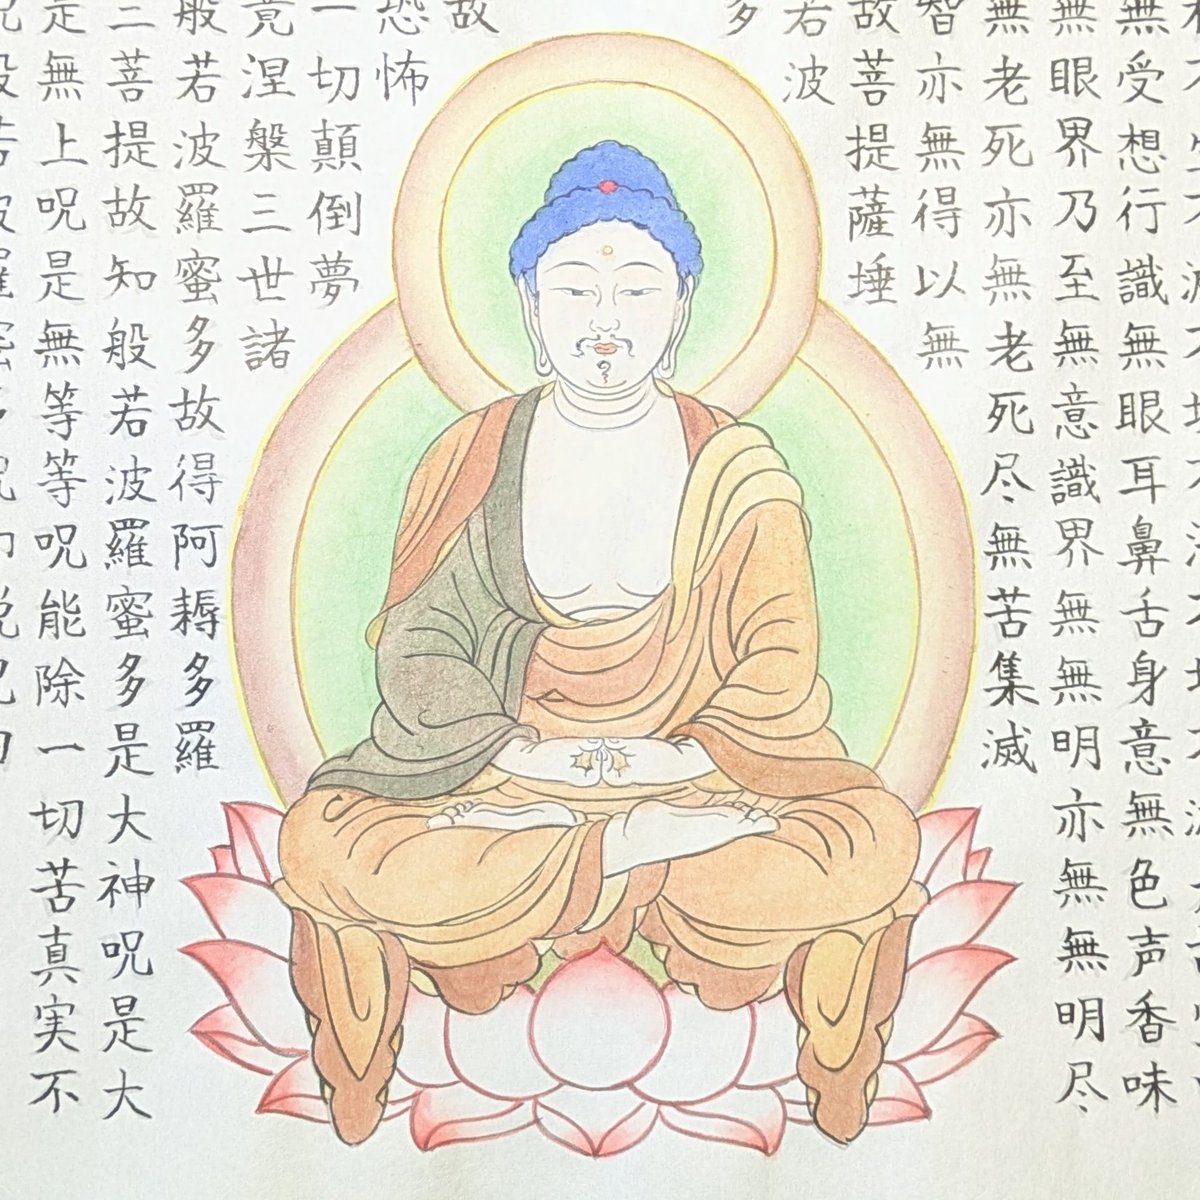 無受想行識無眼耳鼻舌身意無色声香味
無眼界乃至無意識界無無明亦無無明尽
無老死亦無老死尽無苦集滅
智亦無得以無
故菩提薩埵
若波
多
故
恐怖
一切顛倒夢
竟涅槃三世諸
般若波羅蜜多故得阿耨多羅
三菩提故知般若波羅蜜多是大神呪是大
是無上呪是無等等呪能除一切苦真実不